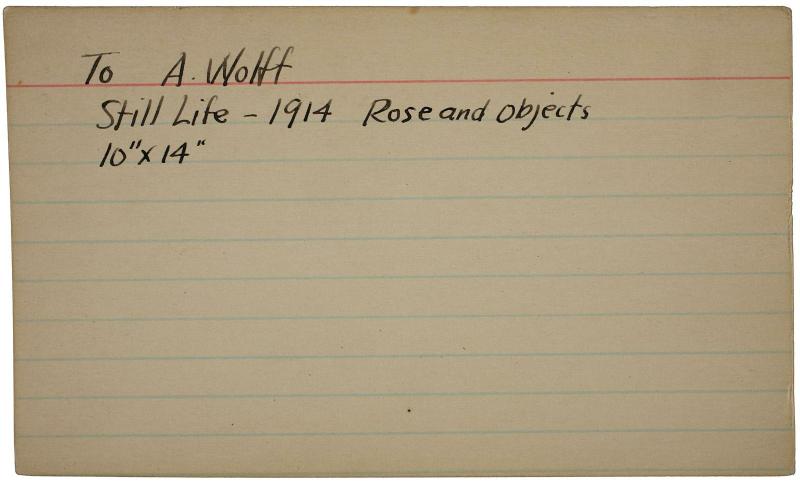 To A. Wolff
Still Life - 1914 Rose and objects
10" x 14"